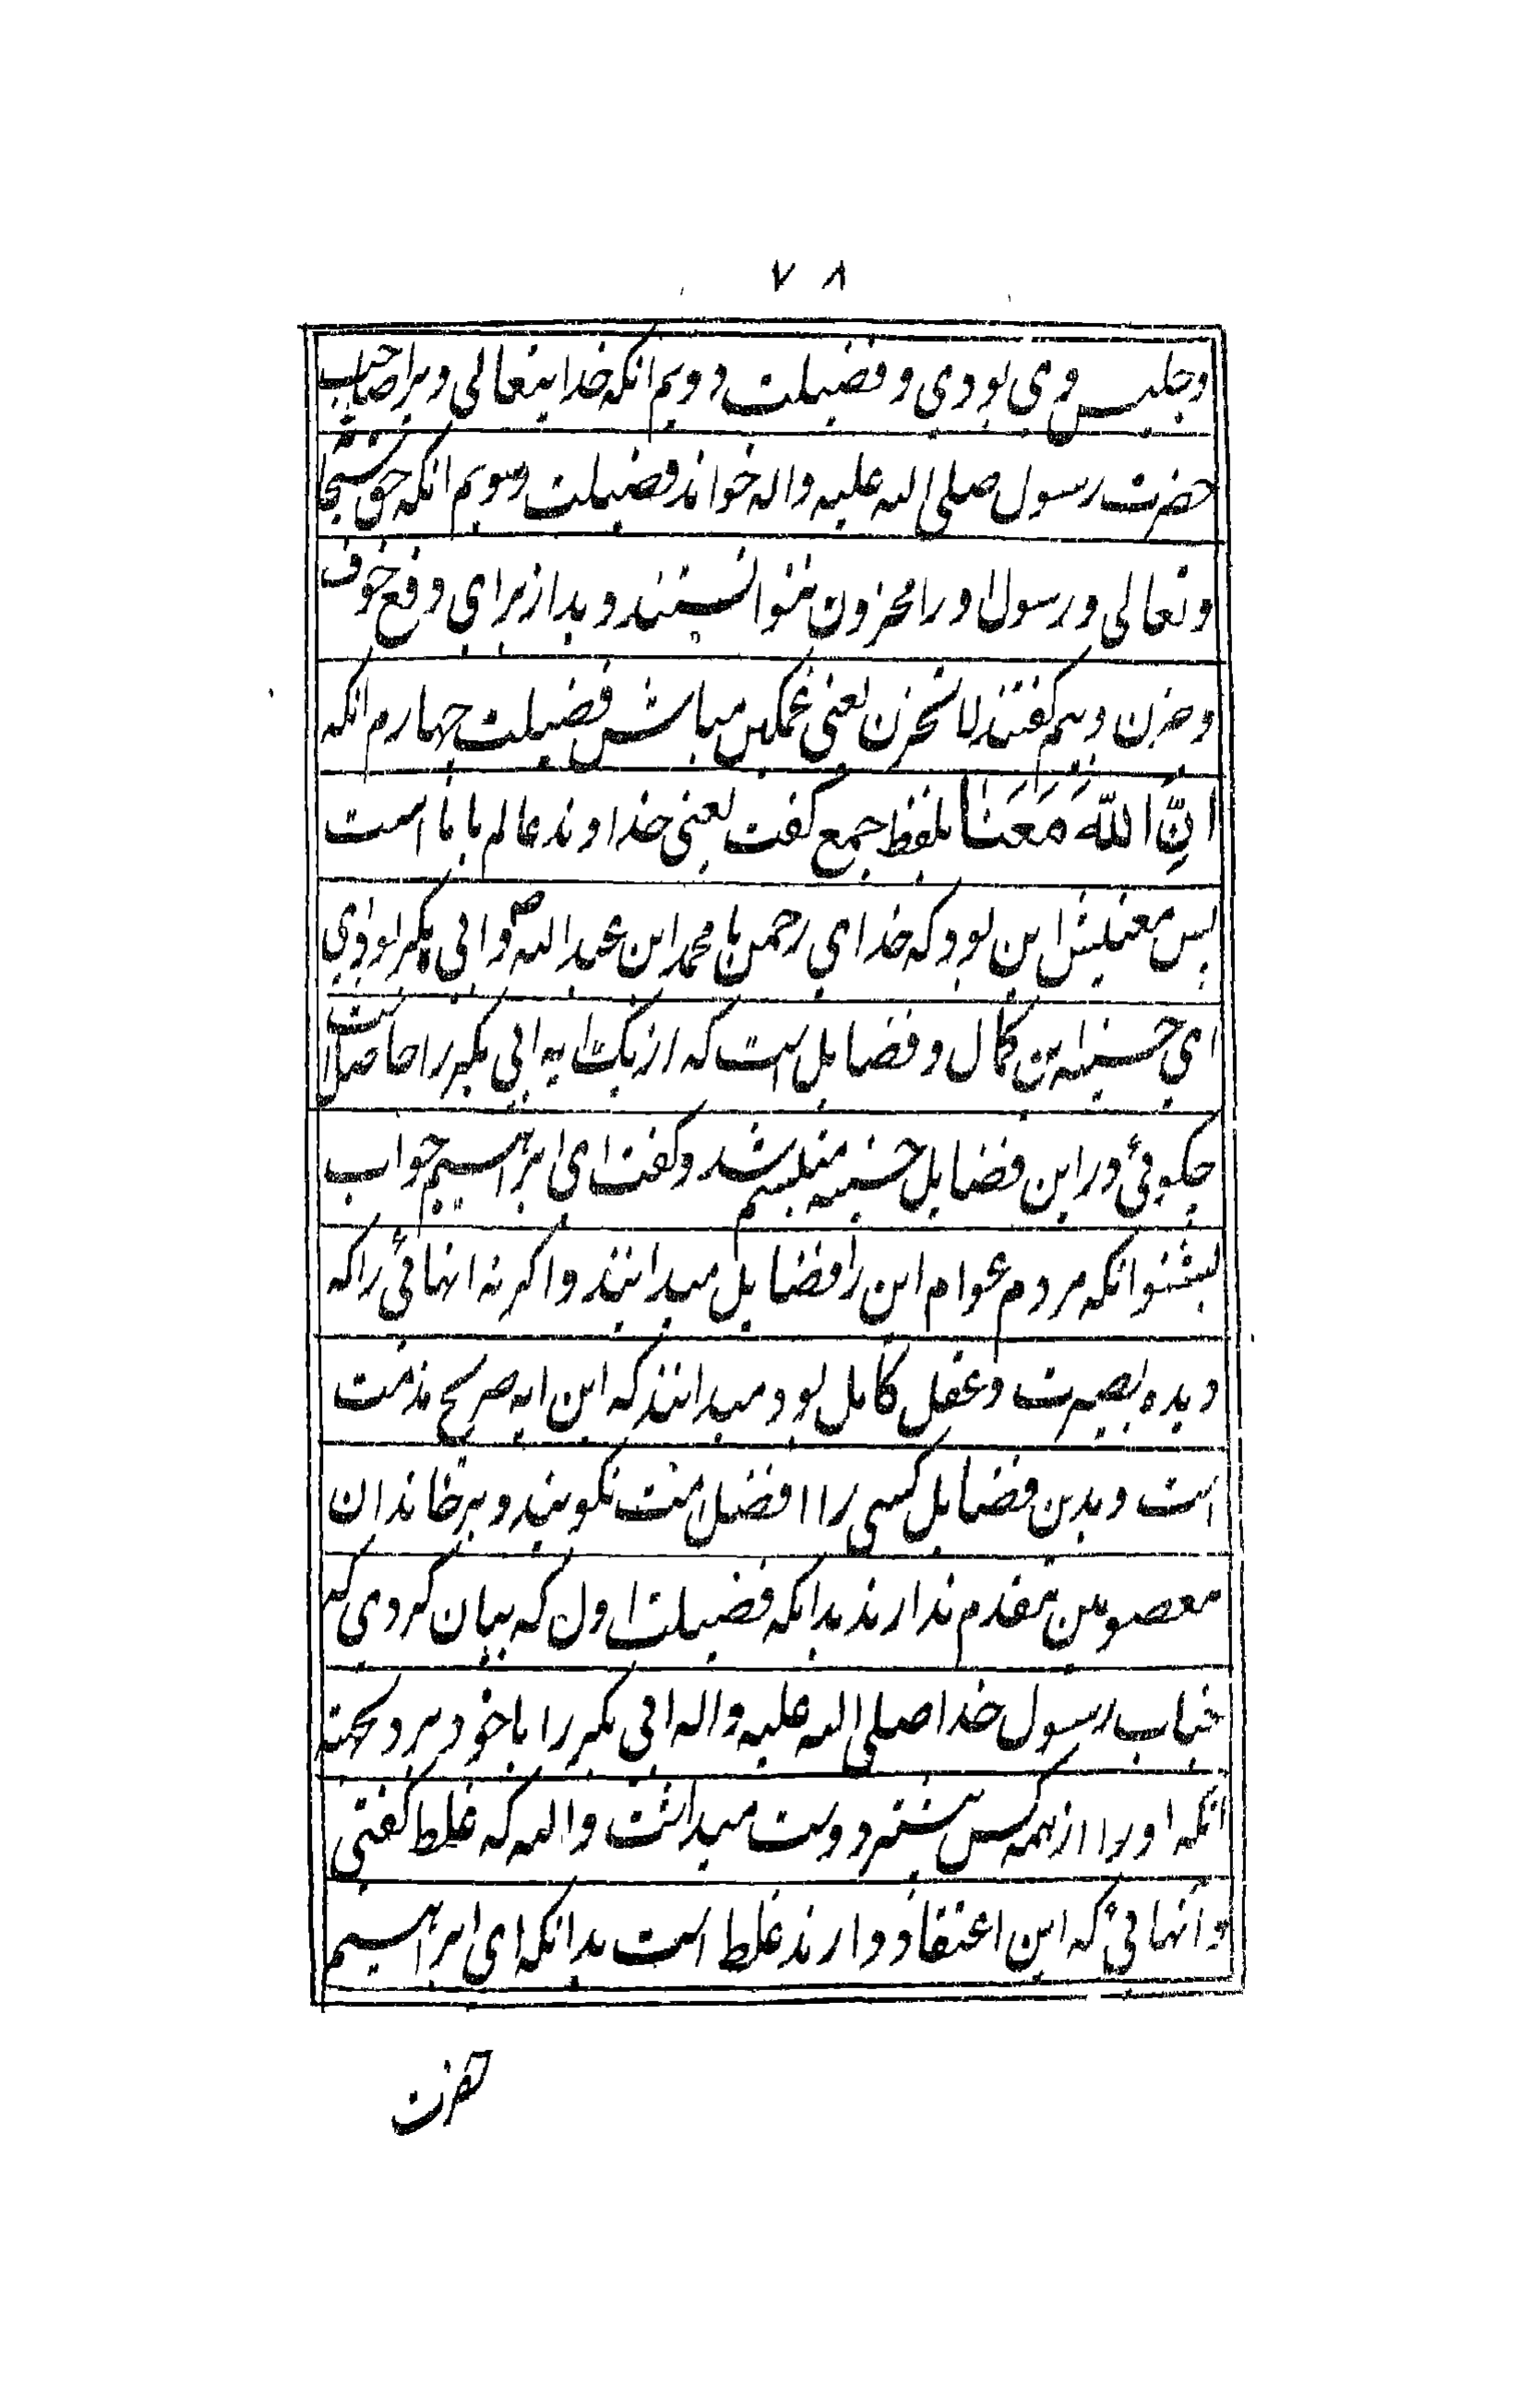 ۷۸
وجلیس وی بودی و فضیلت دویم انکه خدایتعالی ویرا صاحب
حضرت رسول صلی الله علیه واله خواند فضیلت سویم انکه حق سبحانه
وتعالی و رسول او را محزون نتوانستند دید از برای دفع خوف
و حزن ویهم کفتند لا تحزن یعنی غمکین مباش فضیلت چهارم انکه
اِنَّ اللّهَ مَعَنَا بلفظ جمع کفت یعنی خداوند عالم با ما است
پس معنیش این بود که خدای رحمن با محمد ابن عبدالله ص و ابی بکر بودی
ای حسنیه این کمال و فضایل است که از یک ایه ابی بکر را حاصل است
چکوئی در این فضایل حسنیه متبسم شد و کفت ای ابراهیم جواب
بشنو انکه مردم عوام این را فضایل میدانند و اکر نه انهائی را که
دیده بصیرت و عقل کامل بود میدانند که این ایه صریح مذمت
است و بدین فضایل کسی را افضل امت نکویند و بر خاندان
معصومین مقدم ندارند بدانکه فضیلت اول که بیان کردی که
جناب رسول خدا صلی الله علیه واله ابی بکر را با خود برد بجهته
انکه او را از همه کس بیشتر دوست میداشت والله که غلط کفتی
و آنهائی که این اعتقاد دارند غلط است بدانکه ای ابراهیم